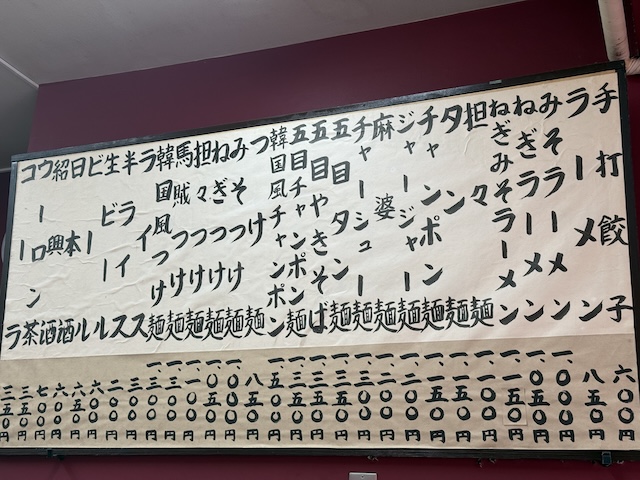 手打餃子 六〇〇円
ラーメン 八五〇円
みそラーメン 一、〇〇〇円
ねぎラーメン 一、〇〇〇円
ねぎみそラーメン 一、一五〇円
担々麺 一、一〇〇円
タン麺 一、一五〇円
チャンポン麺 一、二五〇円
ジャージャー麺 一、二〇〇円
麻婆麺 一、二〇〇円
チャーシュー麺 一、三〇〇円
五目タンメン 一、三五〇円
五目やきそば 一、三〇〇円
五目麺 一、三〇〇円
韓国風チャンポン麺 一、五〇〇円
つけ麺 八五〇円
みそつけ麺 一、〇〇〇円
ねぎつけ麺 一、〇〇〇円
担々つけ麺 一、一〇〇円
馬賊つけ麺 一、三〇〇円
韓国風つけ麺 一、三〇〇円
ライス 三〇〇円
半ライス 二〇〇円
生ビール 六〇〇円
ビール 六五〇円
日本酒 六〇〇円
紹興酒 七〇〇円
ウーロン茶 三五〇円
コーラ 三五〇円